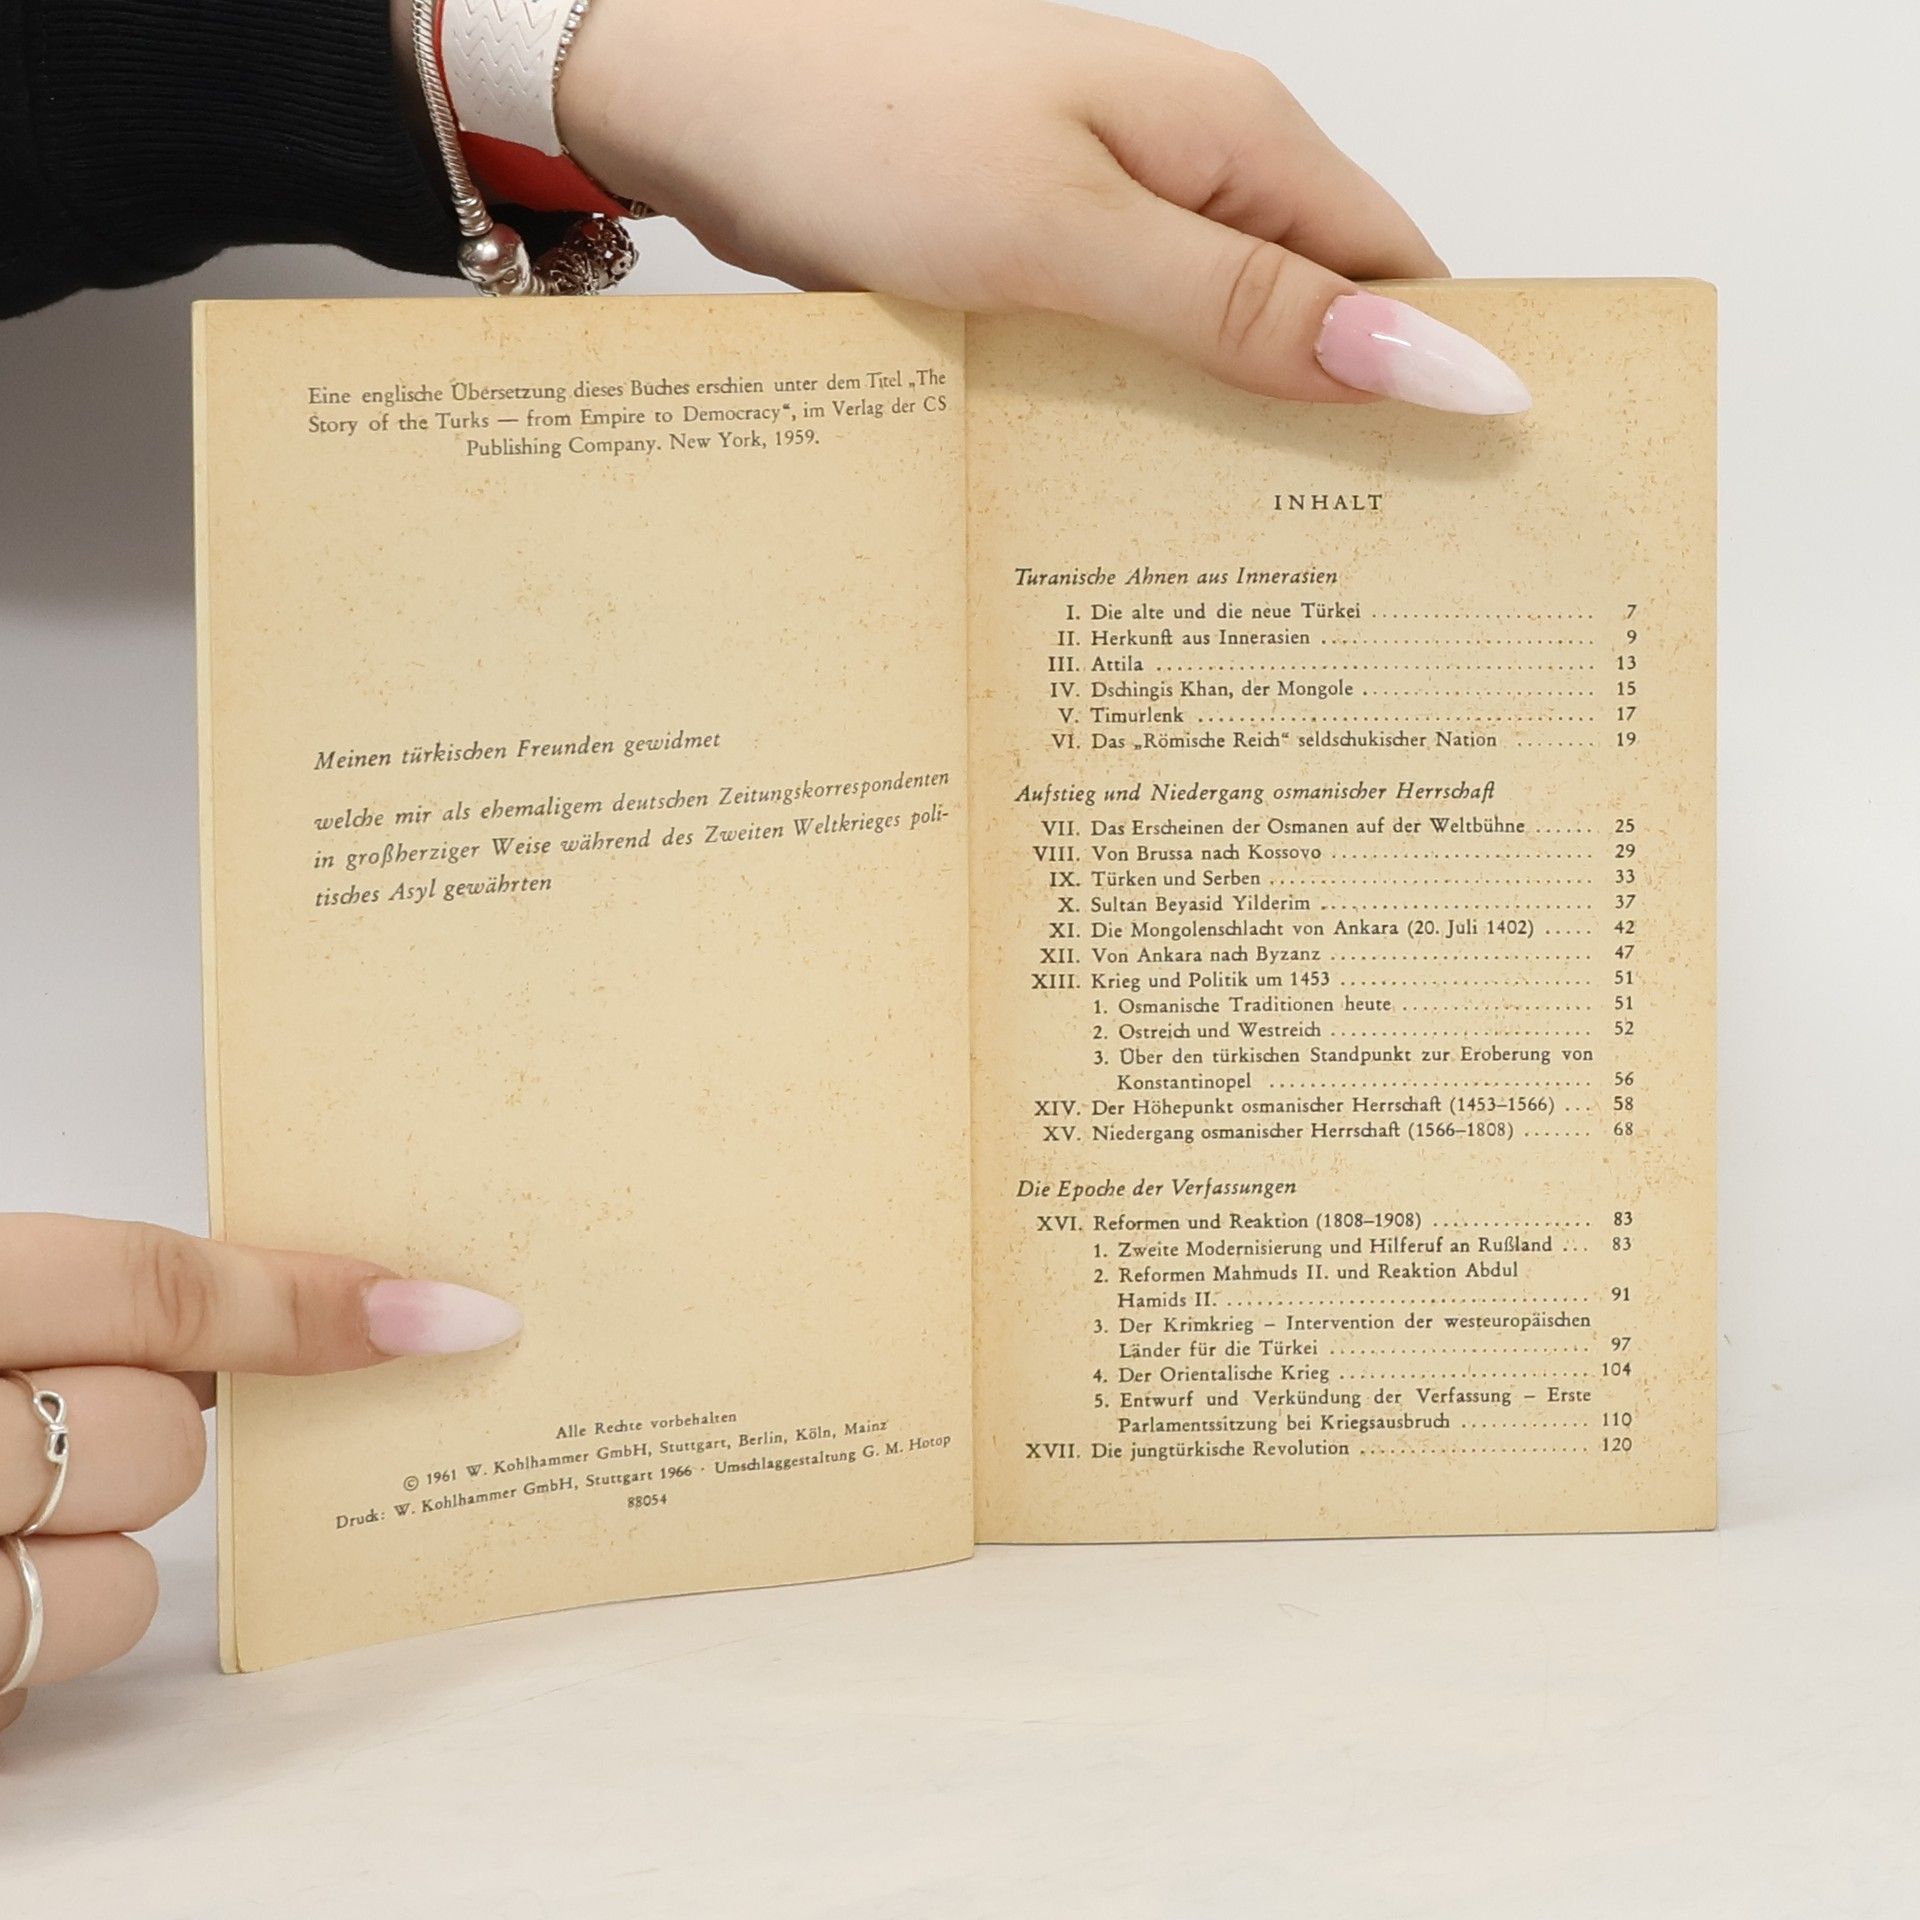 Eine englische Übersetzung dieses Buches erschien unter dem Titel „The
Story of the Turks — from Empire to Democracy“, im Verlag der CS
Publishing Company. New York, 1959.
Meinen türkischen Freunden gewidmet
welche mir als ehemaligem deutschen Zeitungskorrespondenten
in großherziger Weise während des Zweiten Weltkrieges poli-
tisches Asyl gewährten
Alle Rechte vorbehalten
© 1961 W. Kohlhammer GmbH, Stuttgart, Berlin, Köln, Mainz
Druck: W. Kohlhammer GmbH, Stuttgart 1966 · Umschlaggestaltung G. M. Hotop
88054
INHALT
Turanische Ahnen aus Innerasien
I. Die alte und die neue Türkei ..................... 7
II. Herkunft aus Innerasien .......................... 9
III. Attila .......................................... 13
IV. Dschingis Khan, der Mongole ...................... 15
V. Timurlenk ...................................... 17
VI. Das „Römische Reich“ seldschukischer Nation ........ 19
Aufstieg und Niedergang osmanischer Herrschaft
VII. Das Erscheinen der Osmanen auf der Weltbühne ...... 25
VIII. Von Brussa nach Kossovo ......................... 29
IX. Türken und Serben ............................... 33
X. Sultan Beyasid Yilderim .......................... 37
XI. Die Mongolenschlacht von Ankara (20. Juli 1402) ..... 42
XII. Von Ankara nach Byzanz ......................... 47
XIII. Krieg und Politik um 1453 ........................ 51
1. Osmanische Traditionen heute .................. 51
2. Ostreich und Westreich ......................... 52
3. Über den türkischen Standpunkt zur Eroberung von
Konstantinopel ............................... 56
XIV. Der Höhepunkt osmanischer Herrschaft (1453–1566) ... 58
XV. Niedergang osmanischer Herrschaft (1566–1808) ....... 68
Die Epoche der Verfassungen
XVI. Reformen und Reaktion (1808–1908) ............... 83
1. Zweite Modernisierung und Hilferuf an Rußland ... 83
2. Reformen Mahmuds II. und Reaktion Abdul
Hamids II. ................................... 91
3. Der Krimkrieg – Intervention der westeuropäischen
Länder für die Türkei ......................... 97
4. Der Orientalische Krieg ........................ 104
5. Entwurf und Verkündung der Verfassung – Erste
Parlamentssitzung bei Kriegsausbruch ............ 110
XVII. Die jungtürkische Revolution ...................... 120